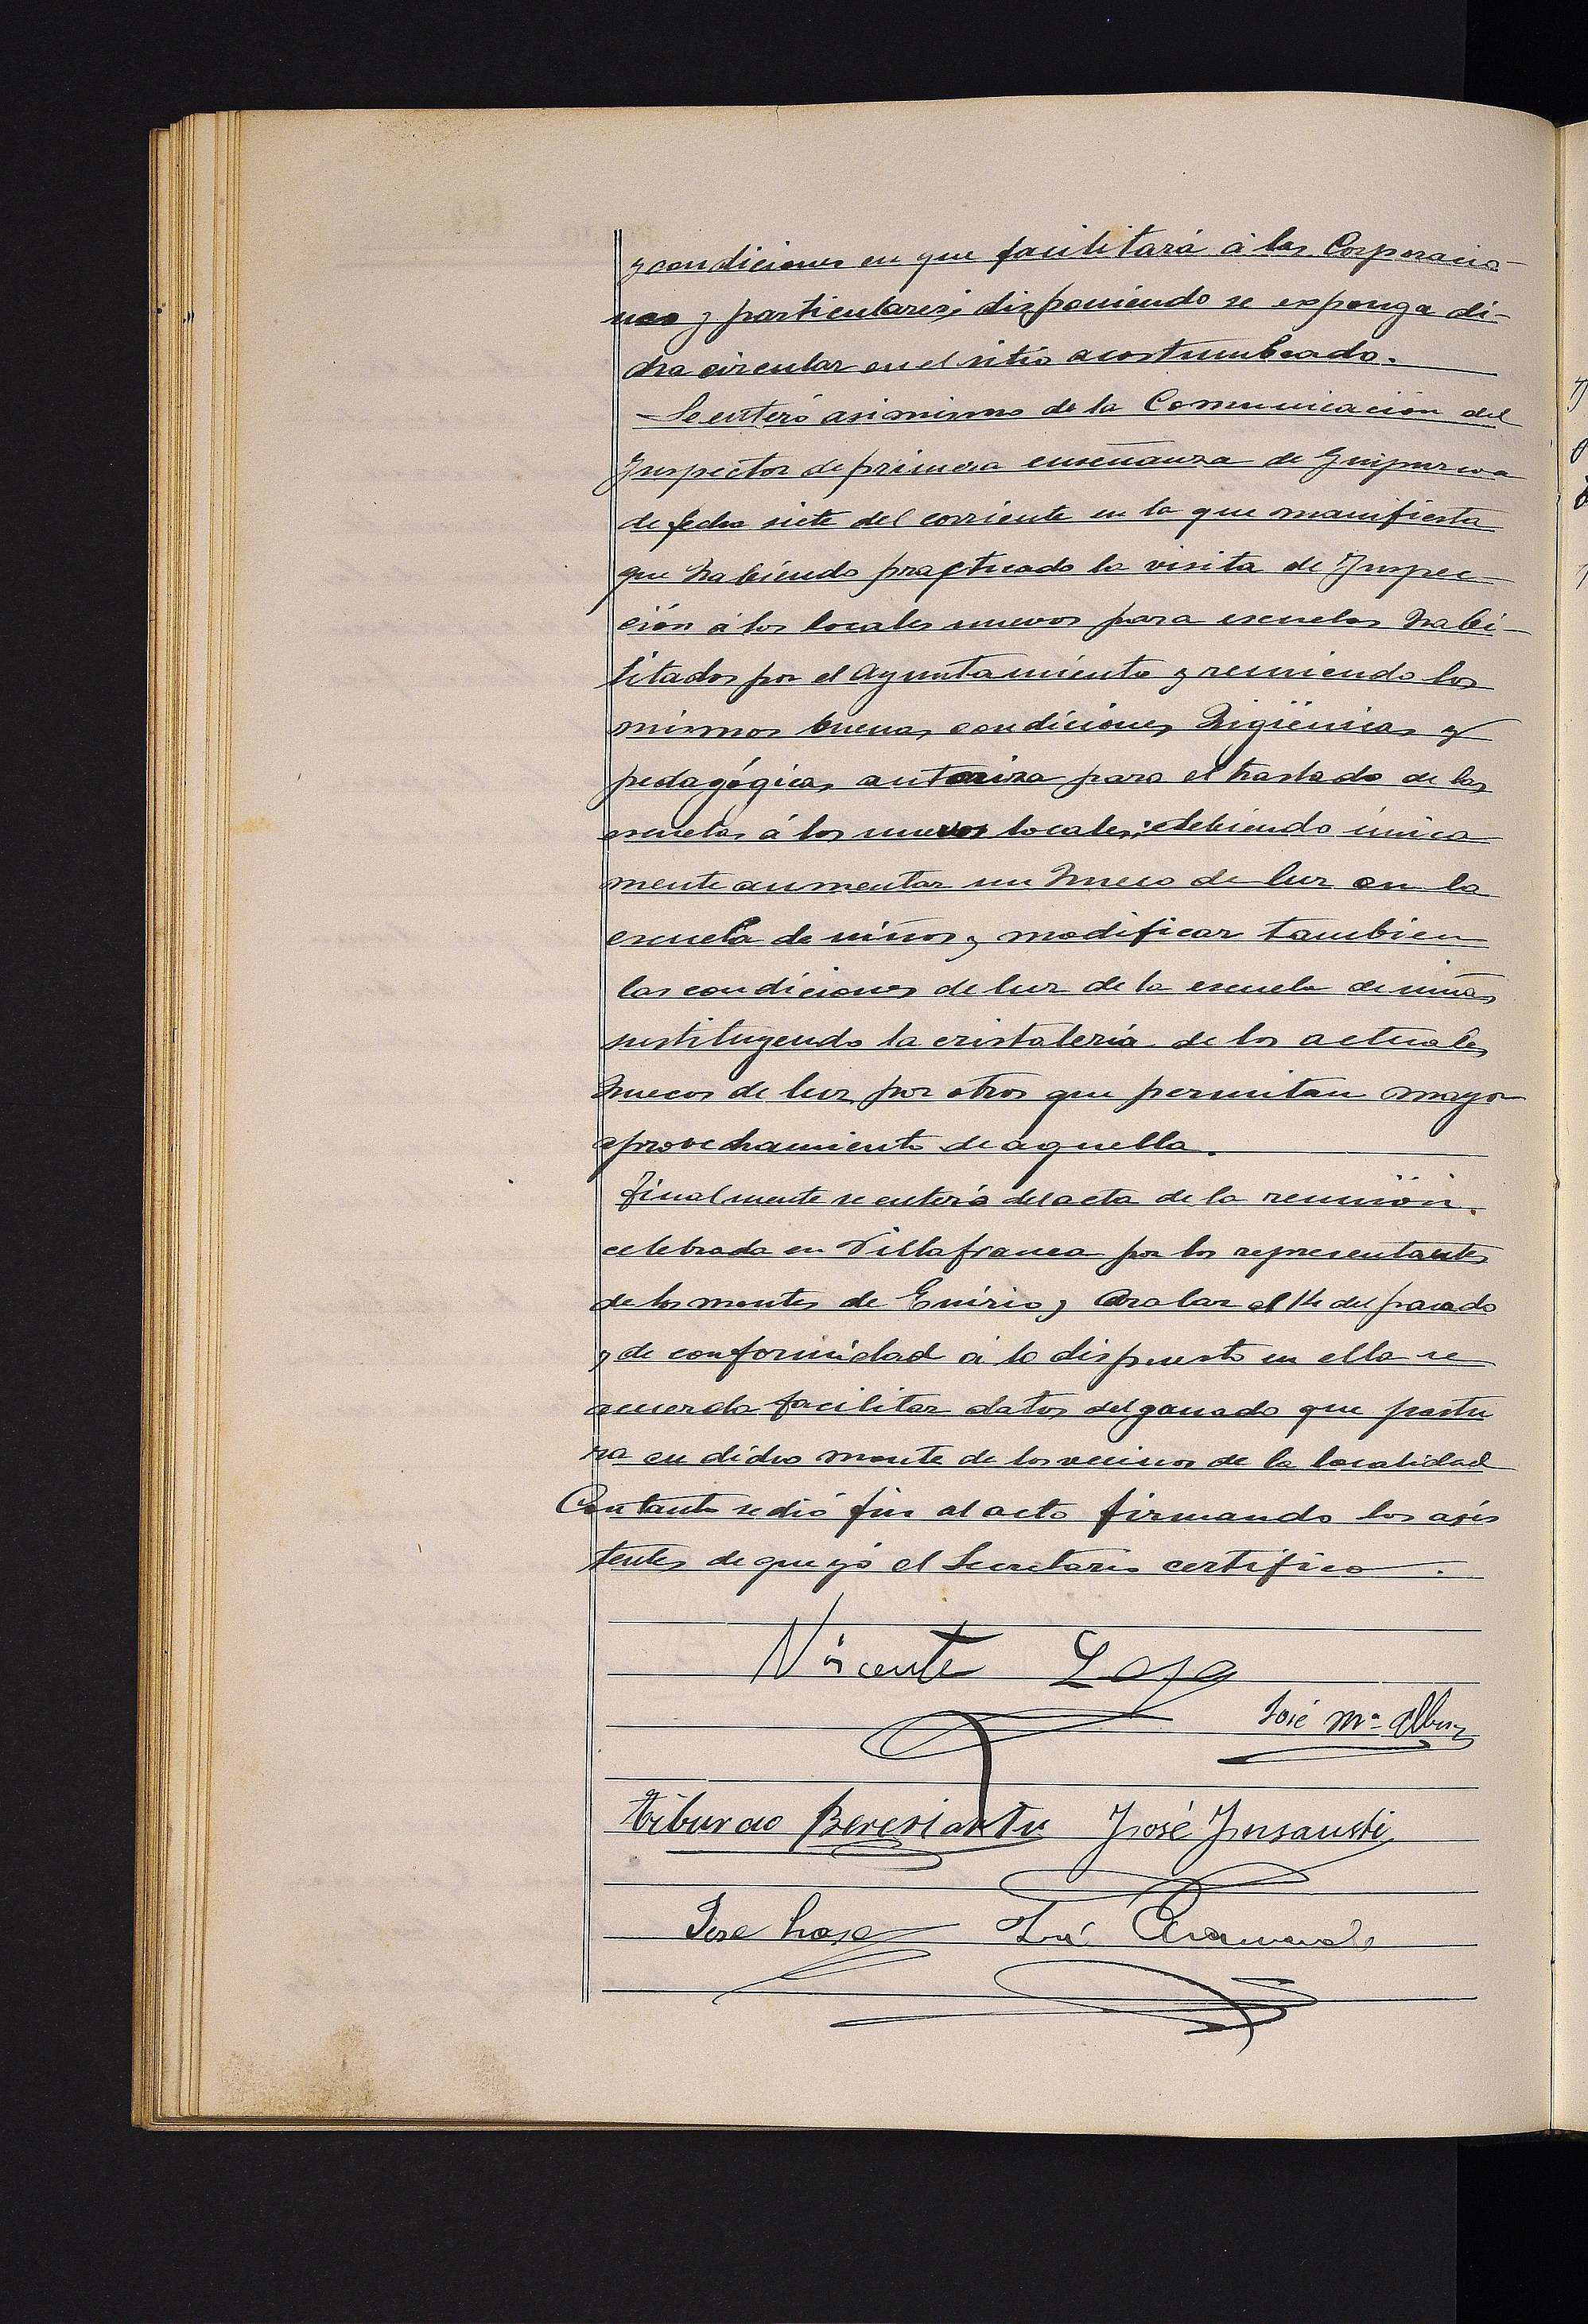 y condiciones en que facilitará á las Corporacio-
nes y particulares; disponiendo se exponga di-
cha circular en el sitio acostumbrado.
Se enteró asimismo de la Comunicación del
Inspector de primera enseñanza de Guipuzcoa
de fecha siete del corriente en la que manifiesta
que habiendo practicado la visita de Inspec
ción á los locales nuevos para escuelas habi-
litados por el Ayuntamiento y reuniendo los
mismos buenas condiciones higiénicas y
pedagógicas autoriza para el traslado de las
escuelas á los nuevos locales; debiendo única
mente aumentar un hueco de luz en la
escuela de niños y modificar tambien
las condiciones de luz de la escuela de niñas
sustituyendo la cristalería de los actuales
huecos de luz por otros que permitan mayor
aprovechamiento de aquella.
Finalmente se enteró del acta de la reunión
celebrada en Villafranca por los representantes
de los montes de Enirio y Aralar el 14 del pasado
y de conformidad á lo dispuesto en ella se
acuerda facilitar datos del ganado que pastu
ra en dicho monte de los vecinos de la localidad
Con tanto se dió fin al acto firmando los asis
tentes de que yó el Secretario certifico.
Vicente Lasa
José Mª
Tiburcio Beresiartu José Insausti
Jose Lasa José